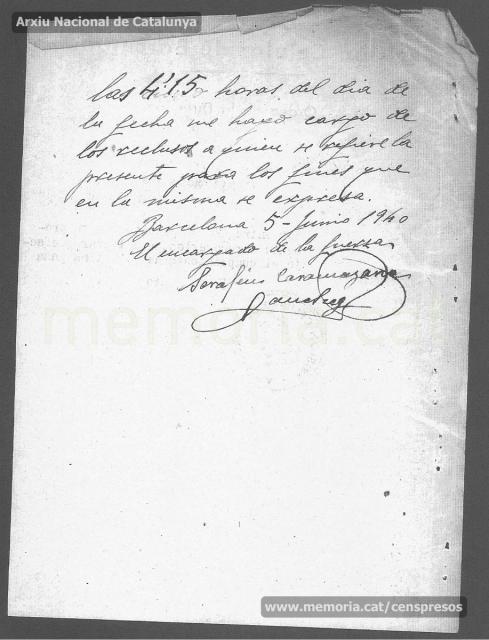 Arxiu Nacional de Catalunya
las 4'15 horas del dia de
la fecha me hago cargo de
los reclusos a quien se refiere la
presente para los fines que
en la misma se expresa.
Barcelona 5 - Junio 1940
El encargado de la fuerza
Serafin
Sanchez
memoria.cat
www.memoria.cat/censpresos